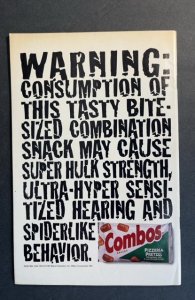 WARNING:
CONSUMPTION OF
THIS TASTY BITE-
SIZED COMBINATION
SNACK MAY CAUSE
SUPER HULK STRENGTH,
ULTRA-HYPER SENSI-
TIZED HEARING AND
SPIDERLIKE
BEHAVIOR.
Combos
PIZZERIA
PRETZEL